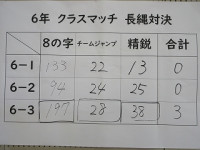 6年 クラスマッチ 長縄対決
8の字 チームジャンプ 精鋭 合計
6-1 133 22 13 0
6-2 94 24 25 0
6-3 197 28 38 3